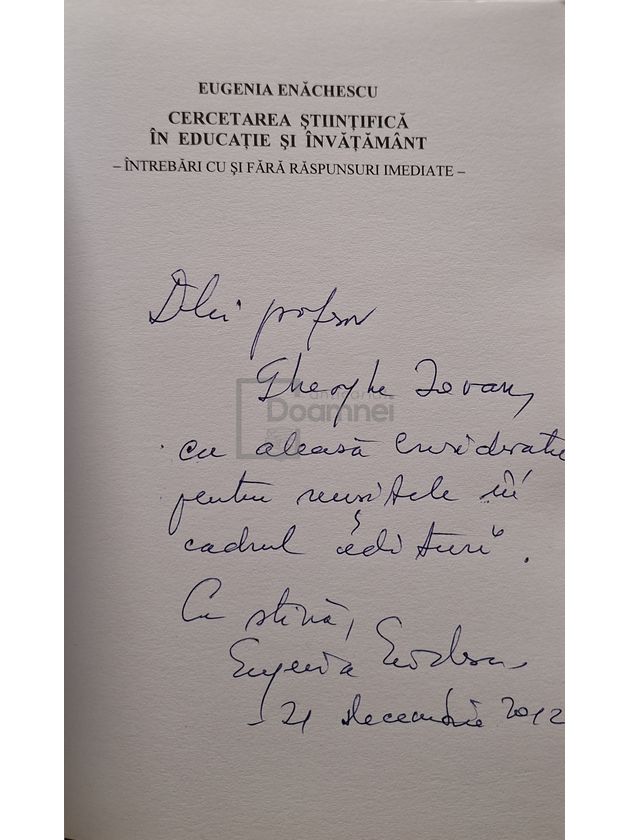 EUGENIA ENĂCHESCU
CERCETAREA ŞTIINŢIFICĂ
ÎN EDUCAŢIE ŞI ÎNVĂŢĂMÂNT
– ÎNTREBĂRI CU ŞI FĂRĂ RĂSPUNSURI IMEDIATE –
Dlui profesor
Gheorghe Iovan,
Doamnei
cu aleasă consideraţie
pentru reuşitele în
cadrul editurii.
Cu stimă,
Eugenia Enăchescu
21 decembrie 2012